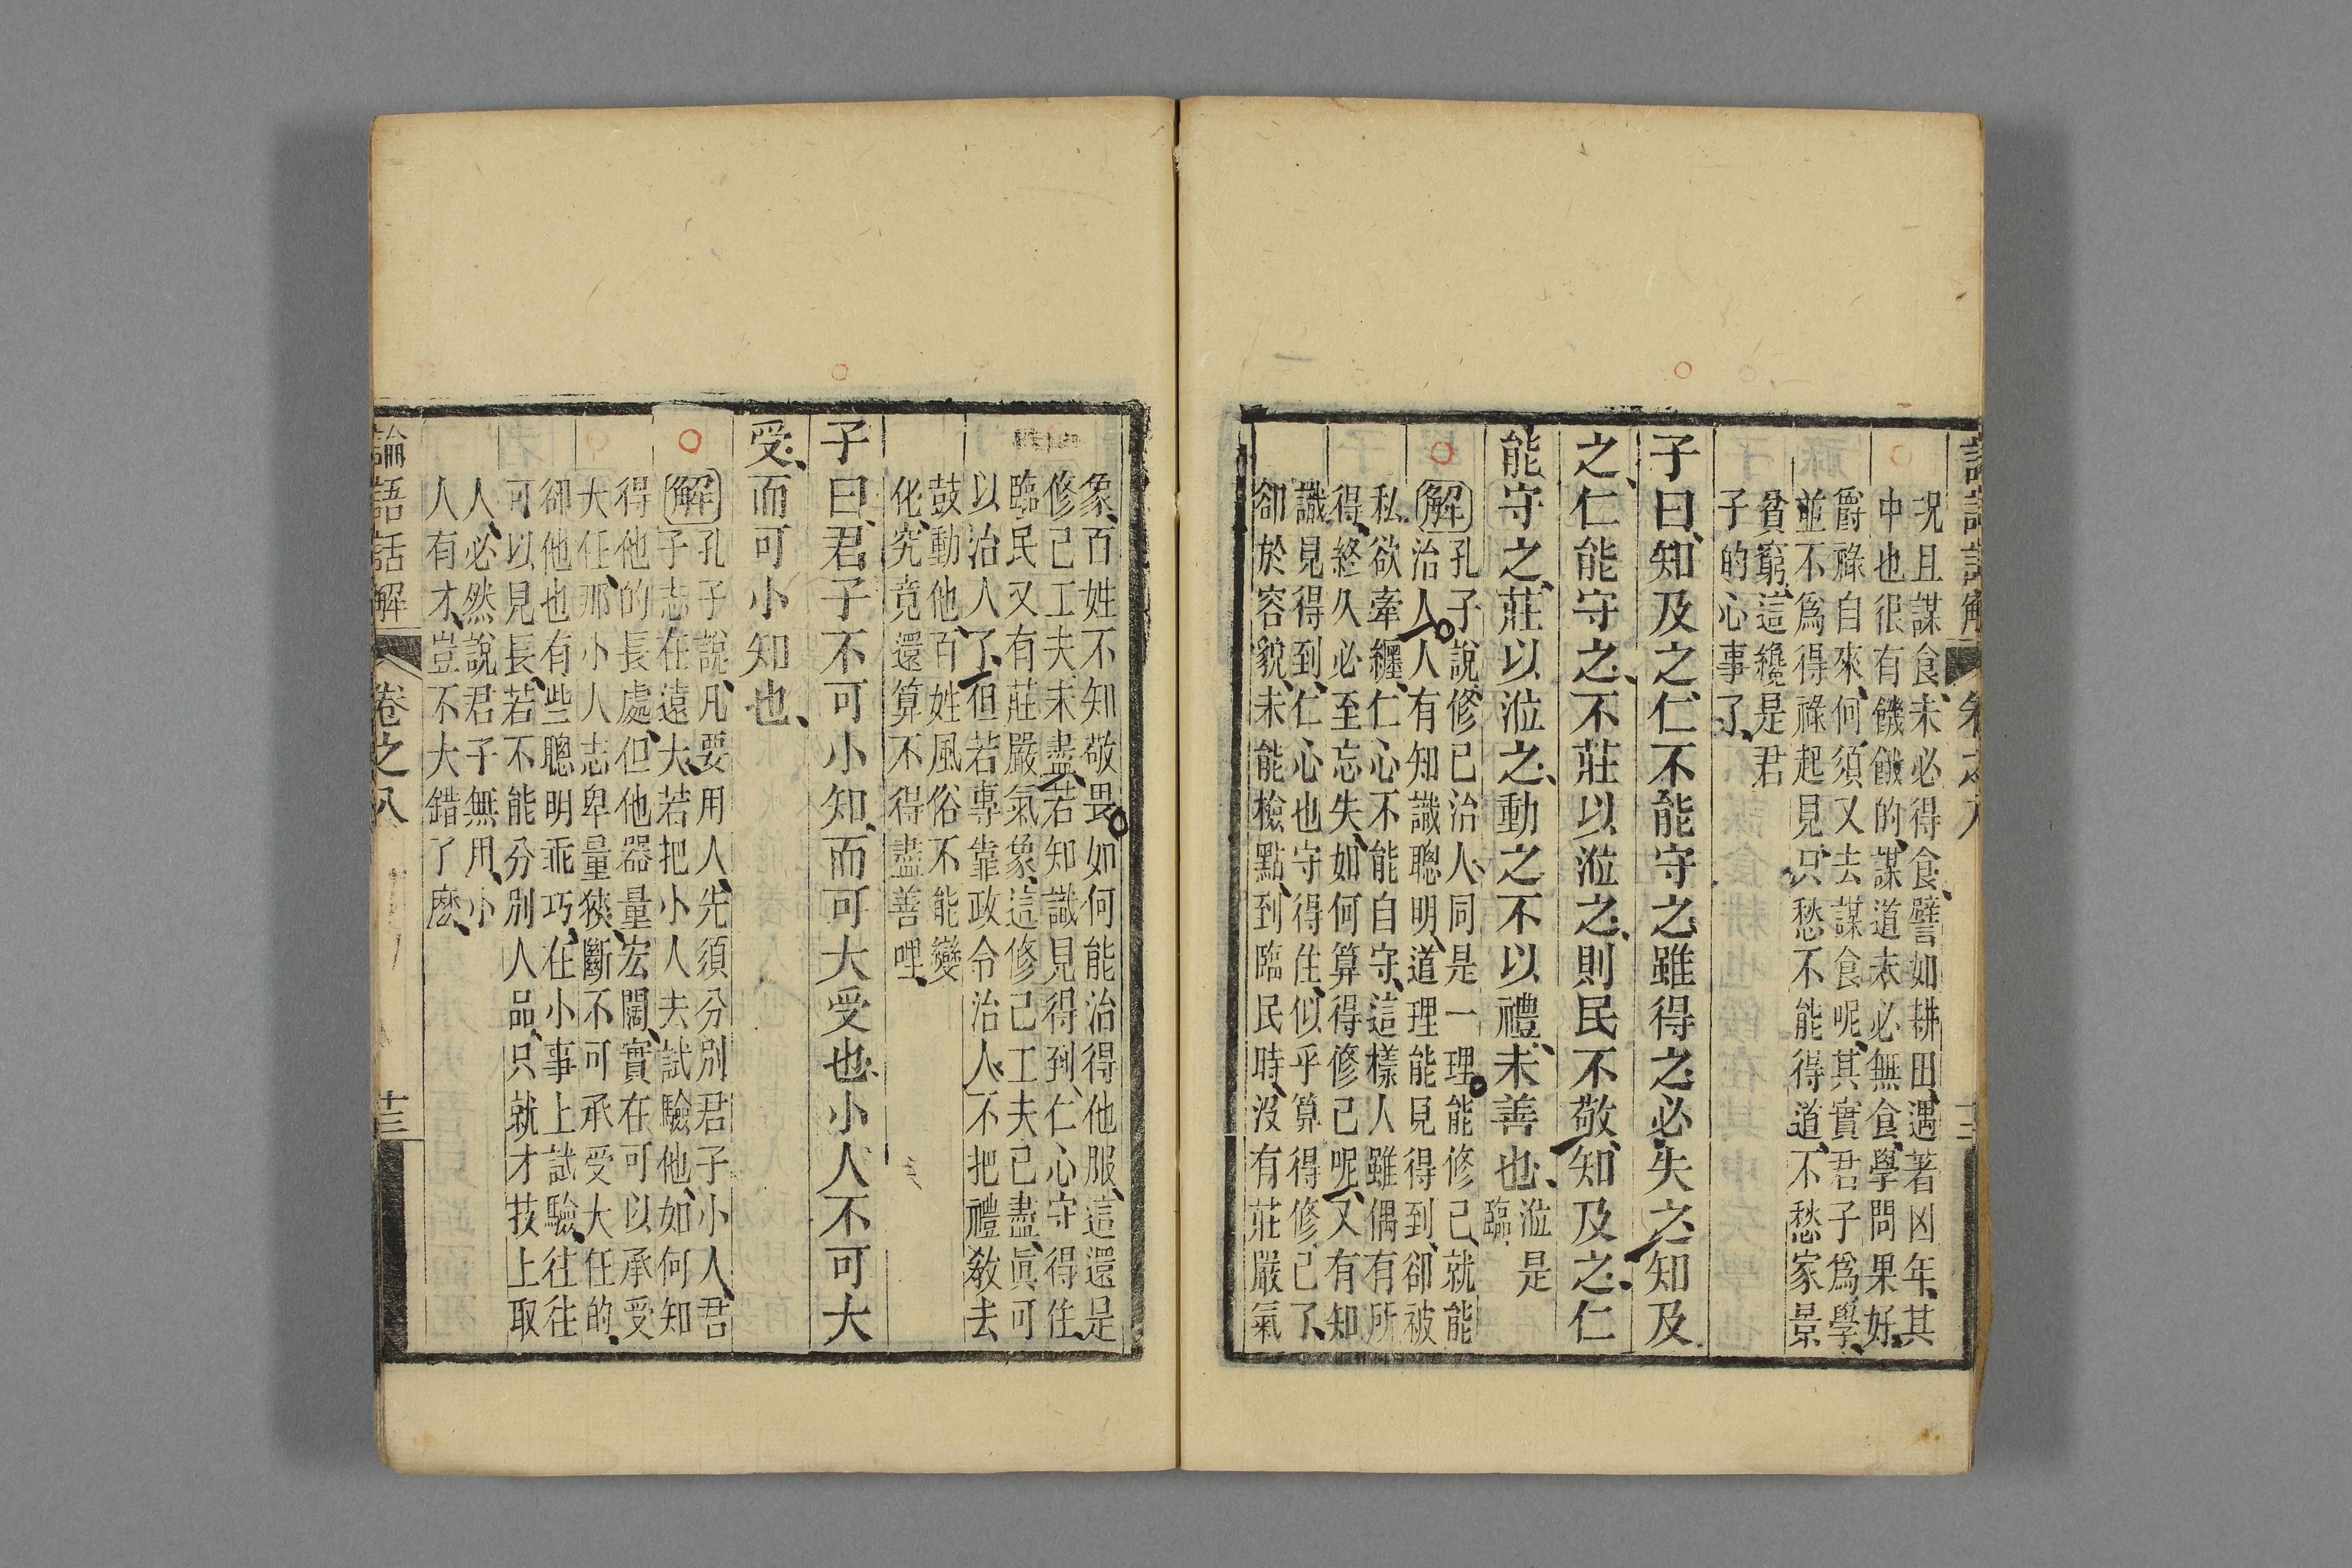 況且謀食、未必得食、譬如耕田、遇著凶年、其
中也很有饑餓的、謀道未必無食、學問果好、
爵祿自來、何須又去謀食呢、其實君子爲學、
並不爲得祿起見、只愁不能得道、不愁家景
貧窮、這纔是君
子的心事了、
子曰、知及之、仁不能守之、雖得之、必失之、知及
之、仁能守之、不莊以涖之、則民不敬、知及之、仁
能守之、莊以涖之、動之不以禮、未善也、涖是
臨
解孔子說、修己治人、同是一理、能修己、就能
治人、人有知識聰明、道理能見得到、卻被
私欲牽纏、仁心不能自守、這樣人雖偶有所
得、終久必至忘失、如何算得修己呢、又有知
識見得到、仁心也守得住、似乎算得修己了、
卻於容貌、未能檢點、到臨民時、沒有莊嚴氣
象、百姓不知敬畏、如何能治得他服、這還是
修己工夫、未盡、若知識見得到、仁心守得住、
臨民又有莊嚴氣象、這修己工夫已盡、眞可
以治人了、但若專靠政令治人、不把禮敎去
鼓動他、百姓風俗不能變
化、究竟還算不得盡善哩、
子曰、君子不可小知、而可大受也、小人不可大
受、而可小知也、
解孔子說、凡要用人、先須分別君子小人、君
子志在遠大、若把小人去試驗他、如何知
得他的長處、但他器量宏闊、實在可以承受
大任、那小人志卑量狹、斷不可承受大任的、
卻他也有些聰明乖巧、在小事上試驗、往往
可以見長、若不能分別人品、只就才技上取
人、必然說君子無用、小
人有才、豈不大錯了麽、
論語話解
卷之八
十三